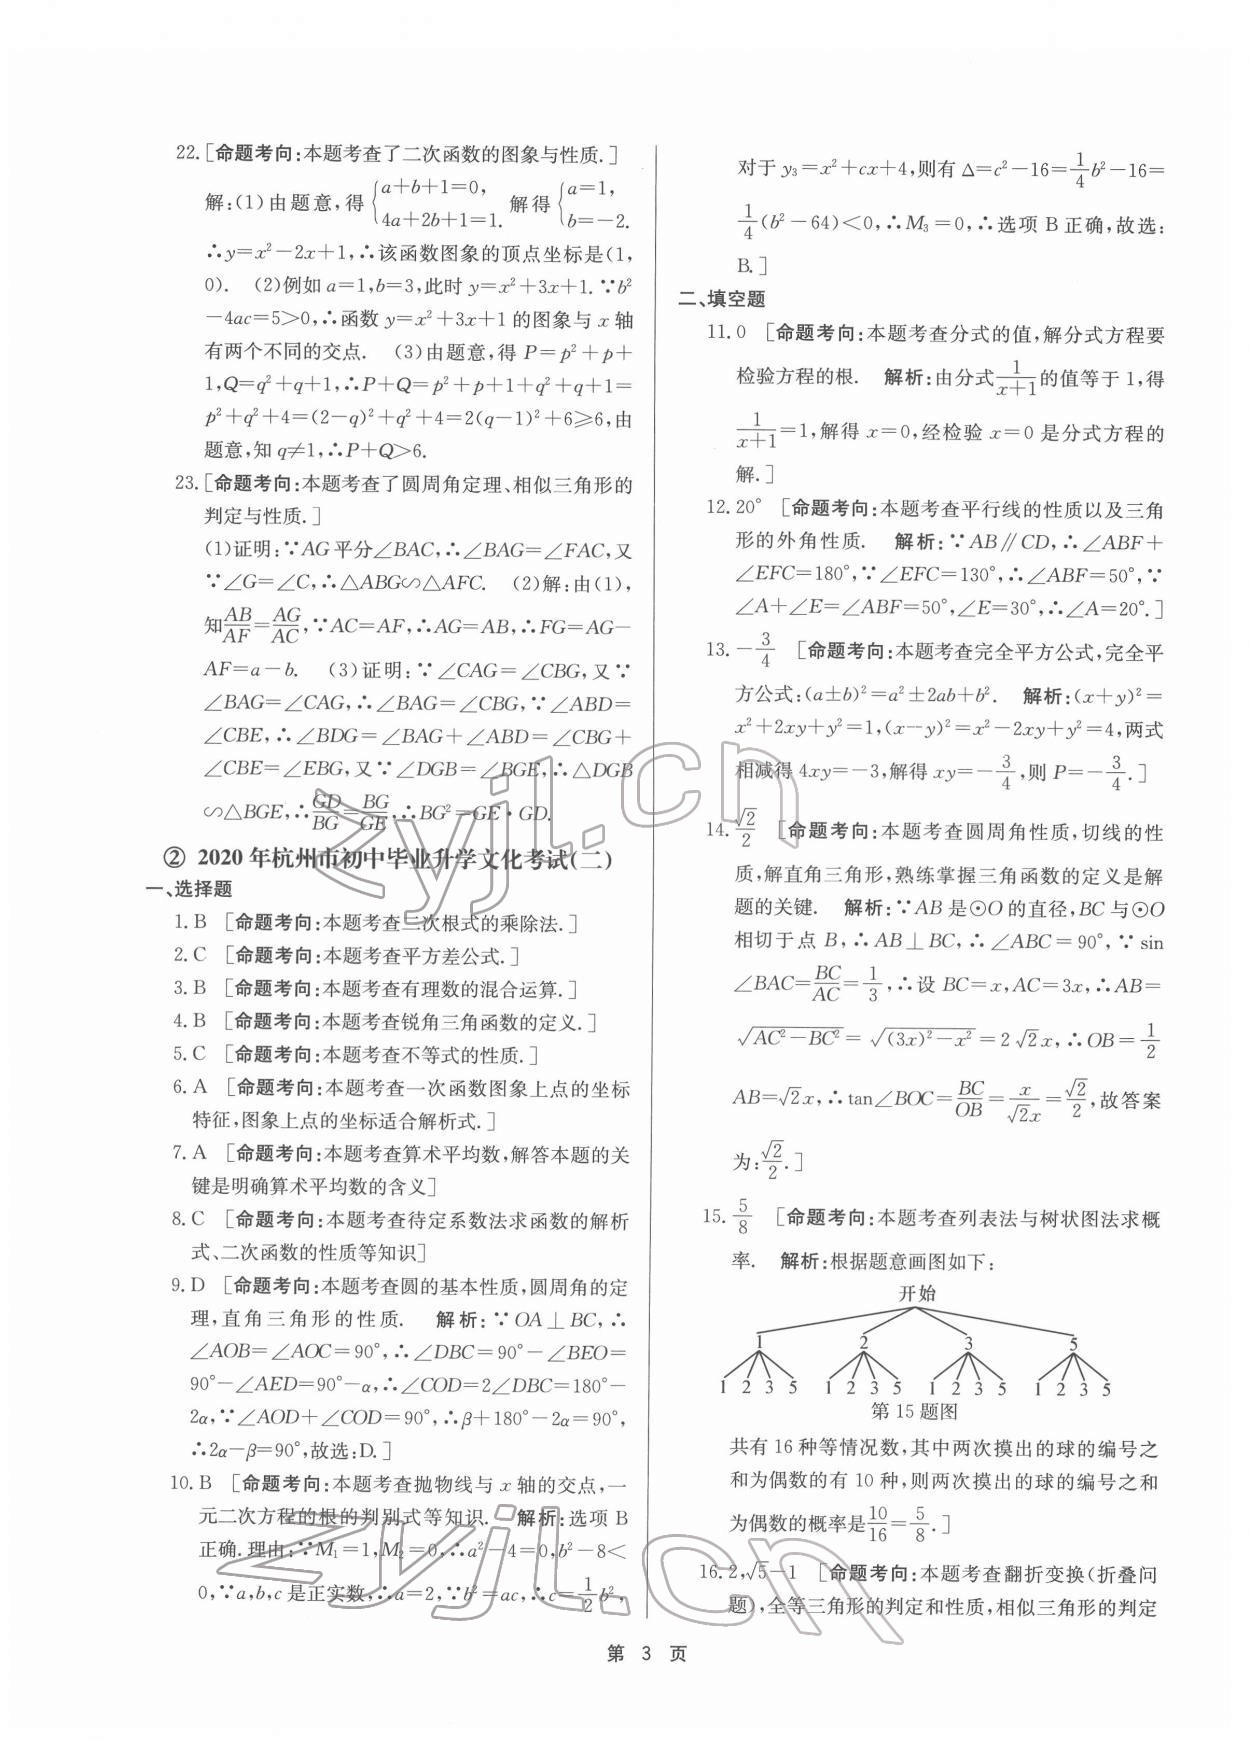 22.[命题考向:本题考查了二次函数的图象与性质.]
解:(1)由题意,得{a+b+1=0, 4a+2b+1=1. 解得{a=1, b=-2.
∴y=x²-2x+1,∴该函数图象的顶点坐标是(1,
0). (2)例如a=1,b=3,此时y=x²+3x+1.∵b²
-4ac=5>0,∴函数y=x²+3x+1的图象与x轴
有两个不同的交点. (3)由题意,得P=p²+p+
1,Q=q²+q+1,∴P+Q=p²+p+1+q²+q+1=
p²+q²+4=(2-q)²+q²+4=2(q-1)²+6≥6,由
题意,知q≠1,∴P+Q>6.
23.[命题考向:本题考查了圆周角定理、相似三角形的
判定与性质.]
(1)证明:∵AG平分∠BAC,∴∠BAG=∠FAC,又
∵∠G=∠C,∴△ABG∽△AFC. (2)解:由(1),
知AB/AF=AG/AC,∵AC=AF,∴AG=AB,∴FG=AG-
AF=a-b. (3)证明:∵∠CAG=∠CBG,又∵
∠BAG=∠CAG,∴∠BAG=∠CBG,∵∠ABD=
∠CBE,∴∠BDG=∠BAG+∠ABD=∠CBG+
∠CBE=∠EBG,又∵∠DGB=∠BGE,∴△DGB
∽△BGE,∴GD/BG=BG/GE,∴BG²=GE·GD.
② 2020年杭州市初中毕业升学文化考试(二)
一、选择题
1.B [命题考向:本题考查二次根式的乘除法.]
2.C [命题考向:本题考查平方差公式.]
3.B [命题考向:本题考查有理数的混合运算.]
4.B [命题考向:本题考查锐角三角函数的定义.]
5.C [命题考向:本题考查不等式的性质.]
6.A [命题考向:本题考查一次函数图象上点的坐标
特征,图象上点的坐标适合解析式.]
7.A [命题考向:本题考查算术平均数,解答本题的关
键是明确算术平均数的含义]
8.C [命题考向:本题考查待定系数法求函数的解析
式、二次函数的性质等知识]
9.D [命题考向:本题考查圆的基本性质,圆周角的定
理,直角三角形的性质. 解析:∵OA⊥BC,∴
∠AOB=∠AOC=90°,∴∠DBC=90°-∠BEO=
90°-∠AED=90°-α,∴∠COD=2∠DBC=180°-
2α,∵∠AOD+∠COD=90°,∴β+180°-2α=90°,
∴2α-β=90°,故选:D.]
10.B [命题考向:本题考查抛物线与x轴的交点,一
元二次方程的根的判别式等知识. 解析:选项B
正确.理由:∵M₁=1,M₂=0,∴a²-4=0,b²-8<
0,∵a,b,c是正实数,∴a=2,∵b²=ac,∴c=1/2b²,
对于y₃=x²+cx+4,则有Δ=c²-16=1/4b²-16=
1/4(b²-64)<0,∴M₃=0,∴选项B正确,故选:
B.]
二、填空题
11.0 [命题考向:本题考查分式的值,解分式方程要
检验方程的根. 解析:由分式1/(x+1)的值等于1,得
1/(x+1)=1,解得x=0,经检验x=0是分式方程的
解.]
12.20° [命题考向:本题考查平行线的性质以及三角
形的外角性质. 解析:∵AB∥CD,∴∠ABF+
∠EFC=180°,∵∠EFC=130°,∴∠ABF=50°,∵
∠A+∠E=∠ABF=50°,∠E=30°,∴∠A=20°.]
13.-3/4 [命题考向:本题考查完全平方公式,完全平
方公式:(a±b)²=a²±2ab+b². 解析:(x+y)²=
x²+2xy+y²=1,(x-y)²=x²-2xy+y²=4,两式
相减得4xy=-3,解得xy=-3/4,则P=-3/4.]
14.√2/2 [命题考向:本题考查圆周角性质,切线的性
质,解直角三角形,熟练掌握三角函数的定义是解
题的关键. 解析:∵AB是⊙O的直径,BC与⊙O
相切于点B,∴AB⊥BC,∴∠ABC=90°,∵sin
∠BAC=BC/AC=1/3,∴设BC=x,AC=3x,∴AB=
√(AC²-BC²)=√((3x)²-x²)=2√2x,∴OB=1/2
AB=√2x,∴tan∠BOC=BC/OB=x/√2x=√2/2,故答案
为:√2/2.]
15.5/8 [命题考向:本题考查列表法与树状图法求概
率. 解析:根据题意画图如下:
开始
1 2 3 5
1 2 3 5 1 2 3 5 1 2 3 5 1 2 3 5
第15题图
共有16种等情况数,其中两次摸出的球的编号之
和为偶数的有10种,则两次摸出的球的编号之和
为偶数的概率是10/16=5/8.]
16.2,√5-1 [命题考向:本题考查翻折变换(折叠问
题),全等三角形的判定和性质,相似三角形的判定
第 3 页
zyjl.cn
zyjl.cn